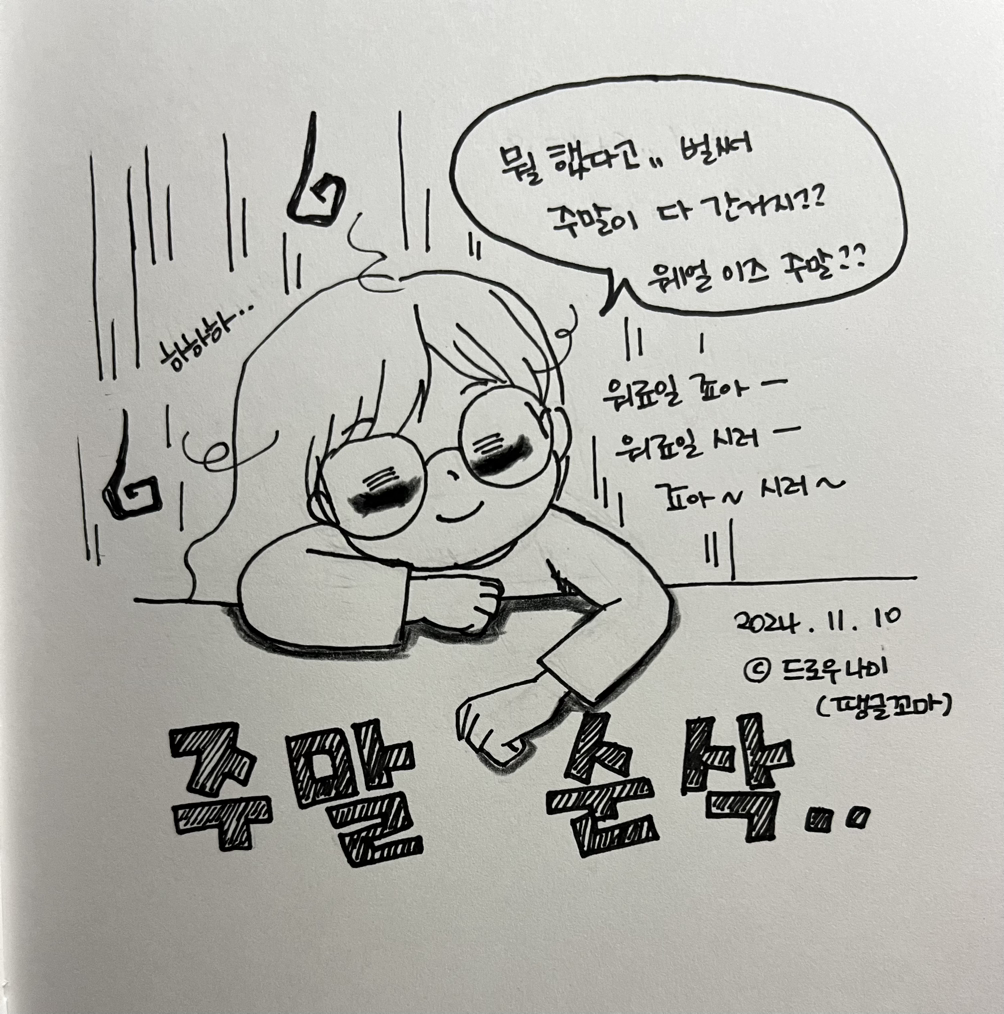 뭘 했다고,, 벌써
주말이 다 간거지??
웨얼 이즈 주말??
하하하..
워료일 죠아 ―
워료일 시러 ―
죠아 ~ 시러 ~
2024. 11. 10
© 드로우나이
(땡글꼬마)
주말 순삭..